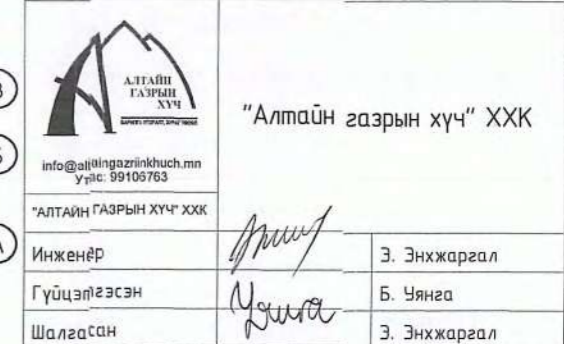 В
Б
А
АЛТАЙН
ГАЗРЫН
ХҮЧ
info@altaingazriinkhuch.mn
Утас: 99106763
"АЛТАЙН ГАЗРЫН ХҮЧ" ХХК
"Алтайн газрын хүч" ХХК
Инженер
Э. Энхжаргал
Гүйцэтгэсэн
Уянга
Б. Уянга
Шалгасан
Э. Энхжаргал